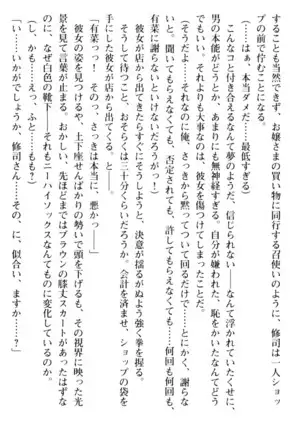 することも当然できず、お嬢さまの買い物に同行する召使いのように、修司は一人ショッ
プの前で佇むことになる。
（……はぁ、本当ダメだ……最低すぎる、俺……）
こんなコと付き合えるなんて夢のようだ、信じられない――なんて浮かれていたくせに、
男の本能がどうとか、あまりにも無神経すぎる。自分が嫌われた、恥をかいたなんてどう
でもいい、それよりも大事なのは、彼女を傷つけてしまったことだ。
（そうだよ……それなのに俺、さっきから黙ってついて回るだけで――とにかく、謝らな
いと。聞いてもらえなくても、否定されても、許してもらえなくても……何回も何回も、
有菜に謝らないといけないだろうがっ！）
彼女が店から出てきたらすぐにそうしようと、決意が揺るがぬよう強く拳を握る。
そうして待つこと、おそらくは三十分くらいだろうか。会計を済ませ、ショップの袋を
手にした彼女が店から出てくる、と――。
「有菜っ！　そのっ、さっきは本当に、悪かっ――」
彼女の姿を見つけるや、土下座せんばかりの勢いで頭を下げるも、その視界に映った光
景を見て言葉が止まる。おかしい、先ほどまではブラウンの膝丈スカートがあったはずな
のに、なぜ白色の靴下……それもニーハイソックスなんてものに変化しているのか。
（し、かも……えっ、ふと……もも？）
「い……いかがでしょうか、修司さん……その、に、似合い、ますか……？」